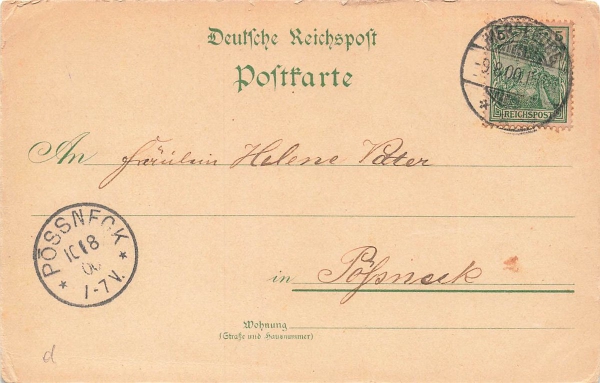 Deutsche Reichspost
Postkarte
5
-9.8.00.
REICHSPOST
An Fräulein Helene Vater
PÖSSNECK
10 8
00
1-7V.
in Pößneck
Wohnung
(Straße und Hausnummer)
d